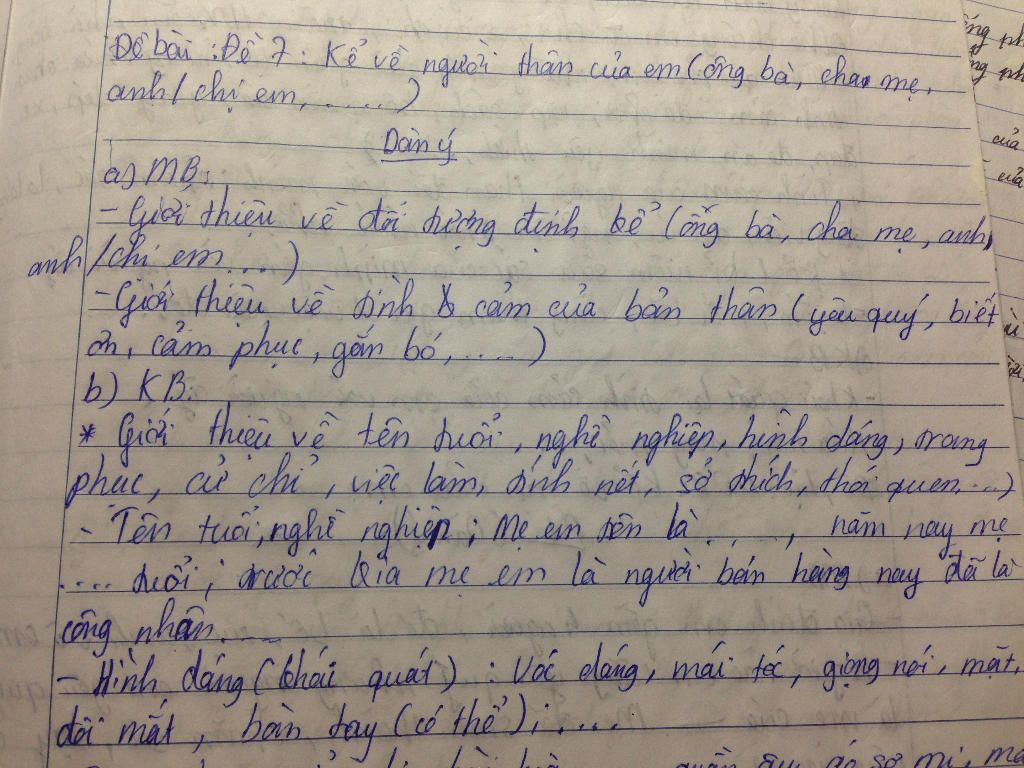 Đề bài : Đề 7 : Kể về người thân của em (ông bà, cha mẹ,
anh / chị em, .....)
Dàn ý
a) MB:
- Giới thiệu về đối tượng định kể (ông bà, cha mẹ, anh,
anh / chị em....)
- Giới thiệu về tình cảm của bản thân (yêu quý, biết
ơn, cảm phục, gắn bó, .....)
b) KB:
* Giới thiệu về tên tuổi, nghề nghiệp, hình dáng, trang
phục, cử chỉ, việc làm, tính nết, sở thích, thói quen...)
- Tên tuổi, nghề nghiệp ; Mẹ em tên là ....., năm nay mẹ
.... tuổi ; trước kia mẹ em là người bán hàng nay đã là
công nhân.....
- Hình dáng (khái quát) ; Vóc dáng, mái tóc, giọng nói, mặt,
đôi mắt, bàn tay (có thể) ; .....
quần âu áo sơ mi,